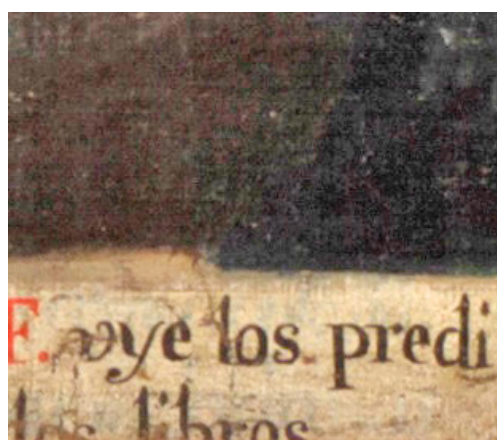 F. oye los predi
los libros